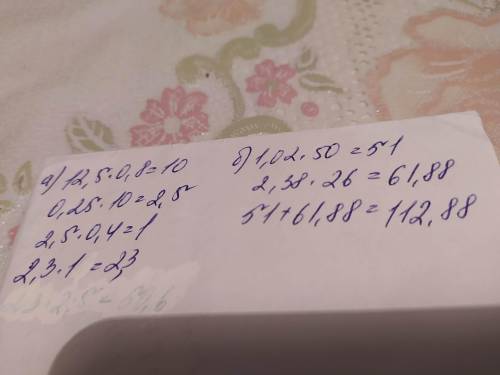 а) 12,5·0,8=10
0,25·10=2,5
2,5·0,4=1
2,3·1=2,3
б) 1,02·50=51
2,38·26=61,88
51+61,88=112,88